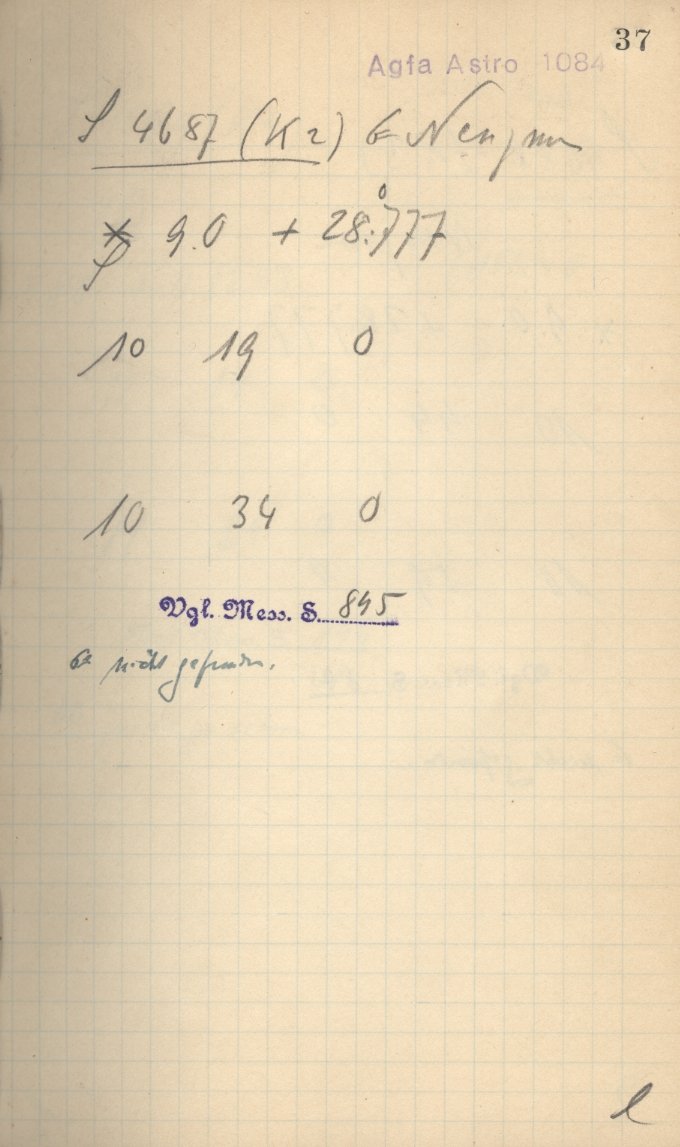 37
Agfa Astro 1084
S 4687 (K 2) Neujmin
* 9.0 + 28°.777
10 19 0
10 34 0
Vgl. Mess. S. 845
nicht gefunden.
l